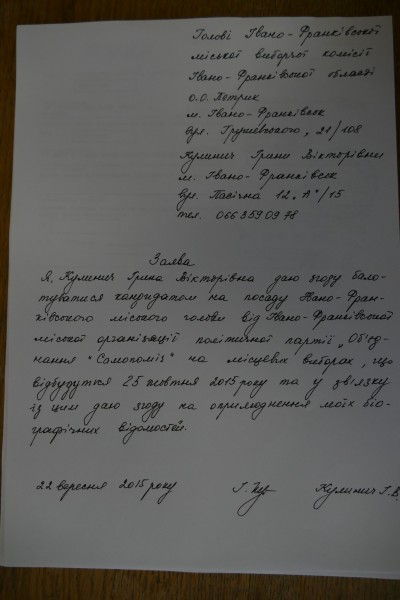 Голові Івано-Франківської
міської виборчої комісії
Івано-Франківської області
О.О. Петрик
м. Івано-Франківськ
вул. Грушевського, 21/108
Кулинич Ірини Вікторівни
м. Івано-Франківськ
вул. Пасічна 12 „А"/15
тел. 0663590978
Заява
Я, Кулинич Ірина Вікторівна даю згоду бало-
туватися кандидатом на посаду Івано-Фран-
ківського міського голови від Івано-Франківської
міської організації політичної партії „Об'єд-
нання "Самопоміч" на місцевих виборах, що
відбудуться 25 жовтня 2015 року та у зв'язку
із цим даю згоду на оприлюднення моїх біо-
графічних відомостей.
22 вересня 2015 року Кулинич І.В.